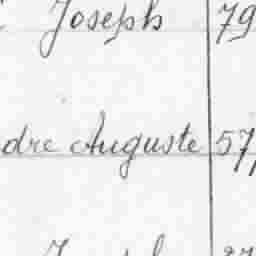 Joseph 79
dre Auguste 57